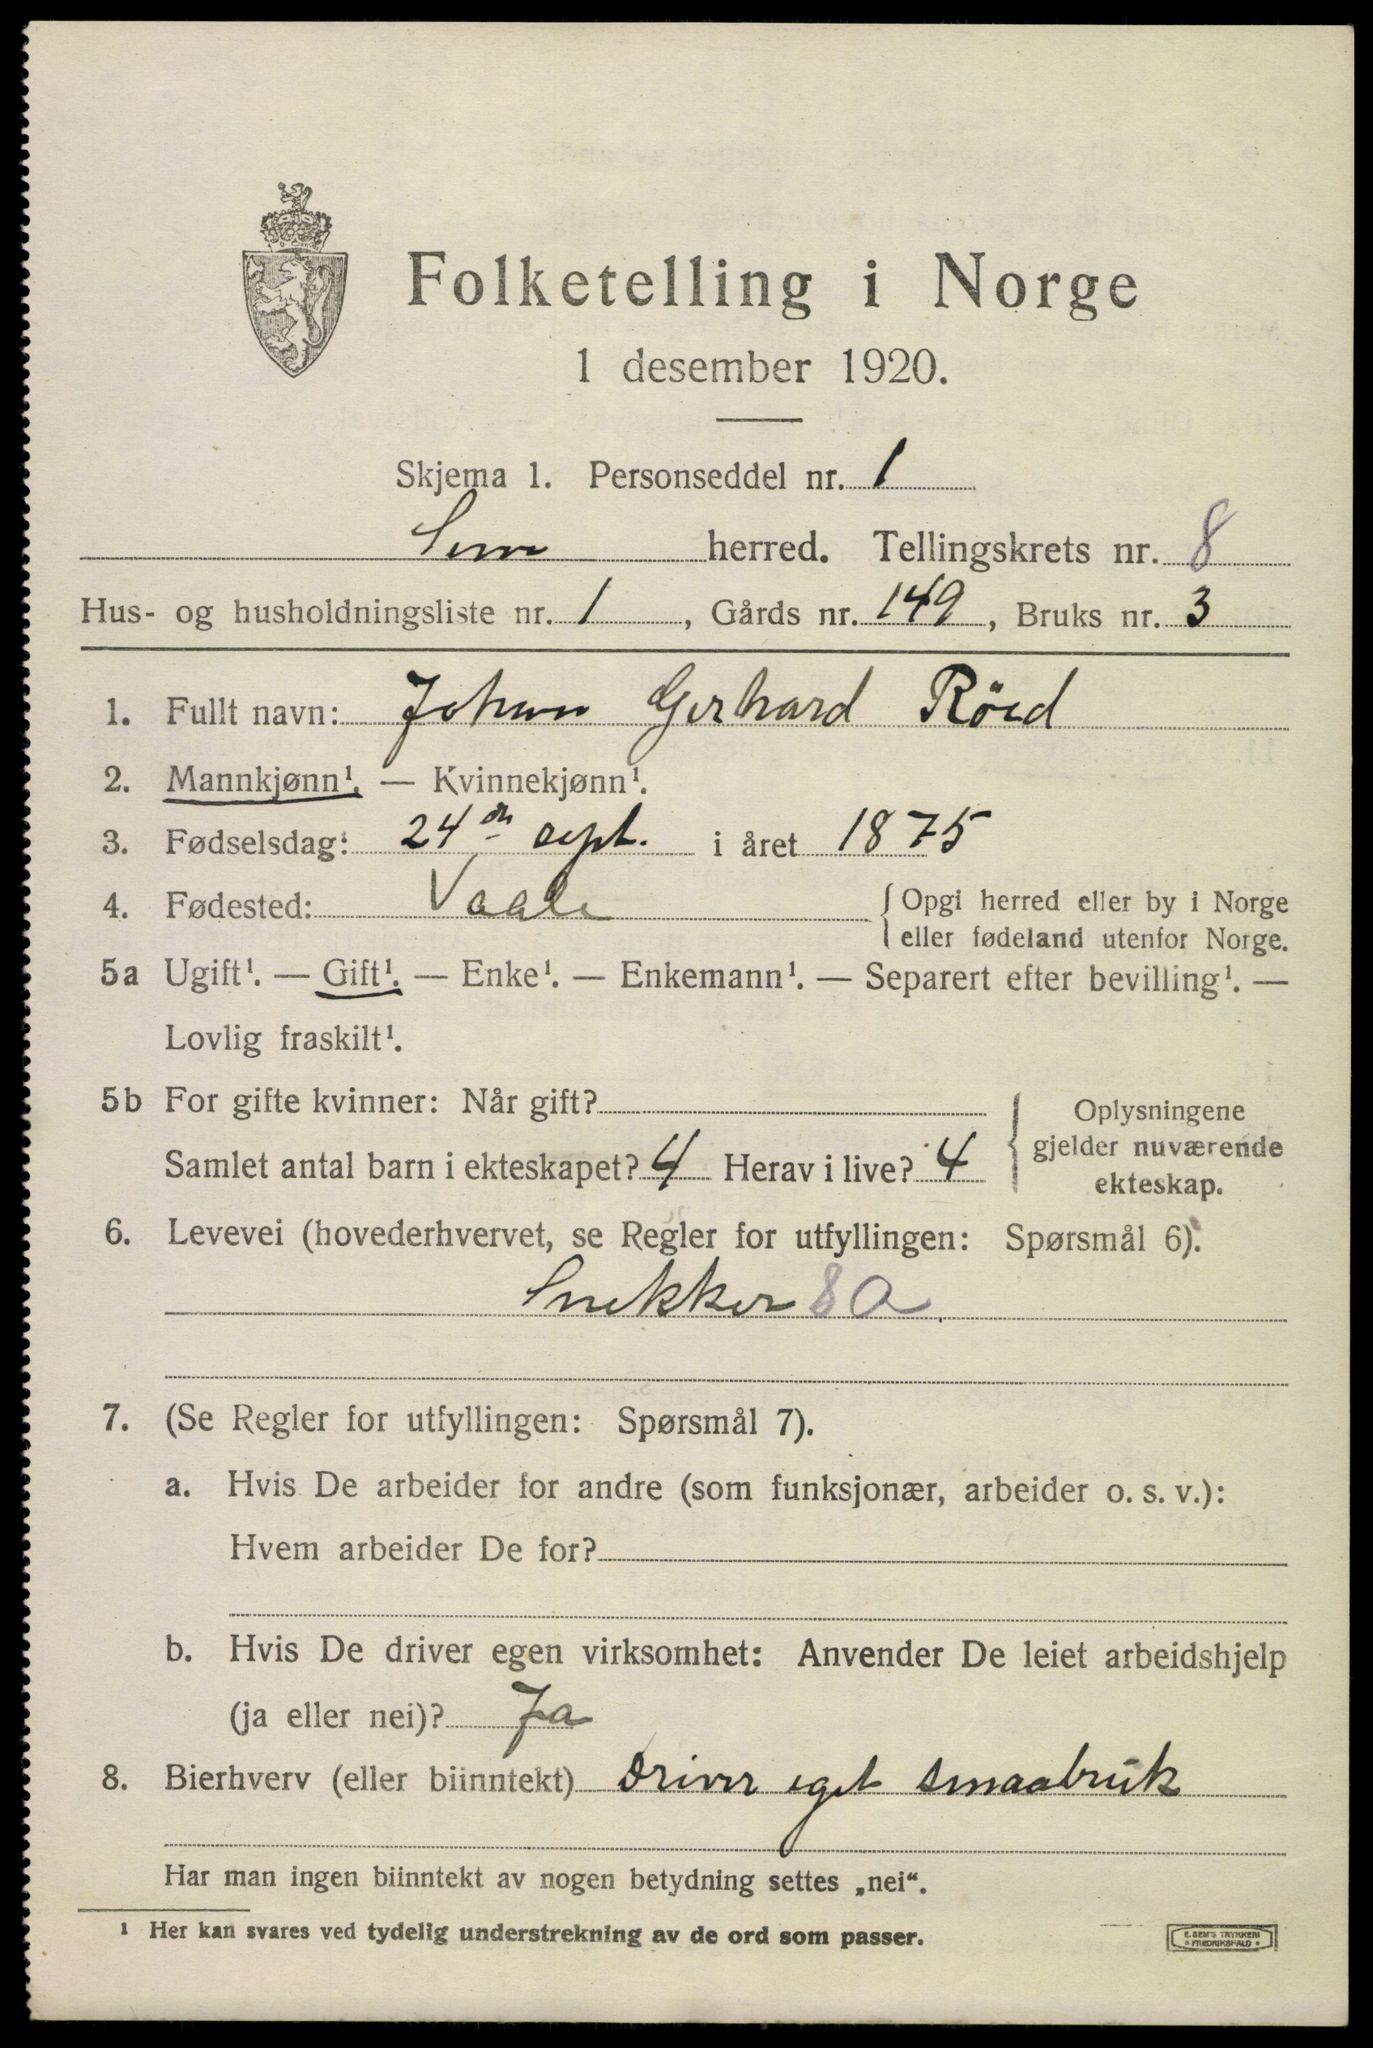 Folketelling i Norge
1 desember 1920.
Skjema 1. Personseddel nr. 1
Sem herred. Tellingskrets nr. 8
Hus- og husholdningsliste nr. 1, Gårds nr. 149, Bruks nr. 3
1. Fullt navn: Johan Gerhard Röed
2. Mannkjønn¹. — Kvinnekjønn¹.
3. Fødselsdag: 24de sept. i året 1875
4. Fødested: Vaale { Opgi herred eller by i Norge
eller fødeland utenfor Norge.
5a Ugift¹. — Gift¹. — Enke¹. — Enkemann¹. — Separert efter bevilling¹. —
Lovlig fraskilt¹.
5b For gifte kvinner: Når gift?
Samlet antal barn i ekteskapet? 4 Herav i live? 4
{ Oplysningene
gjelder nuværende
ekteskap.
6. Levevei (hovederhvervet, se Regler for utfyllingen: Spørsmål 6).
Snekker 8 a
7. (Se Regler for utfyllingen: Spørsmål 7).
a. Hvis De arbeider for andre (som funksjonær, arbeider o. s. v.):
Hvem arbeider De for?
b. Hvis De driver egen virksomhet: Anvender De leiet arbeidshjelp
(ja eller nei)? Ja
8. Bierhverv (eller biinntekt) Driver eget smaabruk
Har man ingen biinntekt av nogen betydning settes „nei“.
¹ Her kan svares ved tydelig understrekning av de ord som passer.
E. SEM'S TRYKKERI
FREDRIKSHALD